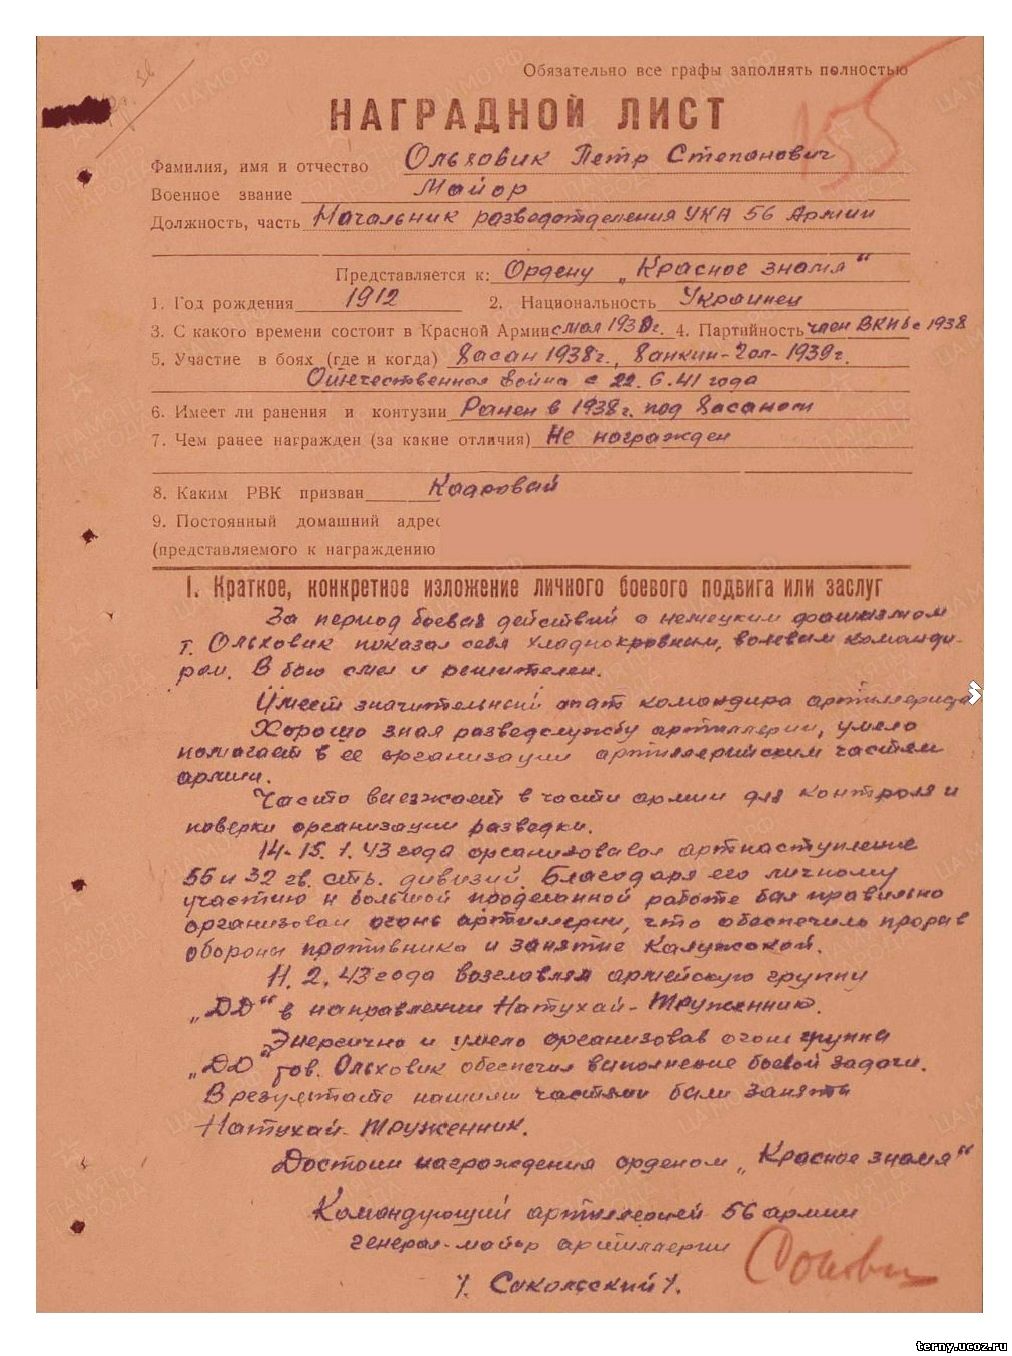 Обязательно все графы заполнять полностью
155
НАГРАДНОЙ ЛИСТ
Фамилия, имя и отчество Ольховик Петр Степанович
Военное звание Майор
Должность, часть Начальник разведотделения УКА 56 Армии
Представляется к: Ордену „Красное знамя“
1. Год рождения 1912 2. Национальность Украинец
3. С какого времени состоит в Красной Армии с мая 1930г. 4. Партийность член ВКПб с 1938
5. Участие в боях (где и когда) Хасан 1938г., Ханкин-Гол-1939г.
Отечественная война с 22.6.41 года
6. Имеет ли ранения и контузии Ранен в 1938г. под Хасаном
7. Чем ранее награжден (за какие отличия) Не награжден
8. Каким РВК призван Кадровый
9. Постоянный домашний адрес
(представляемого к награждению
I. Краткое, конкретное изложение личного боевого подвига или заслуг
За период боевых действий с немецким фашизмом
т. Ольховик показал себя хладнокровным, волевым команди-
ром. В бою смел и решителен.
Имеет значительный опыт командира артиллериста
Хорошо зная разведслужбу артиллерии, умело
помогает в её организации артиллерийским частям
армии.
Часто выезжает в части армии для контроля и
поверки организации разведки.
14-15.1.43 года организовал артнаступление
55 и 32 гв. стр. дивизий. Благодаря его личному
участию и большой проделанной работе был правильно
организован огонь артиллерии, что обеспечило прорыв
обороны противника и занятие Калужской.
Н. 2. 43 года возглавлял армейскую группу
„ДД“ в направлении Натухай-Труженник.
Энергично и умело организовав огонь группы
„ДД“ тов. Ольховик обеспечил выполнение боевой задачи.
В результате нашими частями были заняты
Натухай-Труженник.
Достоин награждения орденом „Красное знамя“
Командующий артиллерией 56 армии
генерал-майор артиллерии
/. Сокольский /.
terny.ucoz.ru